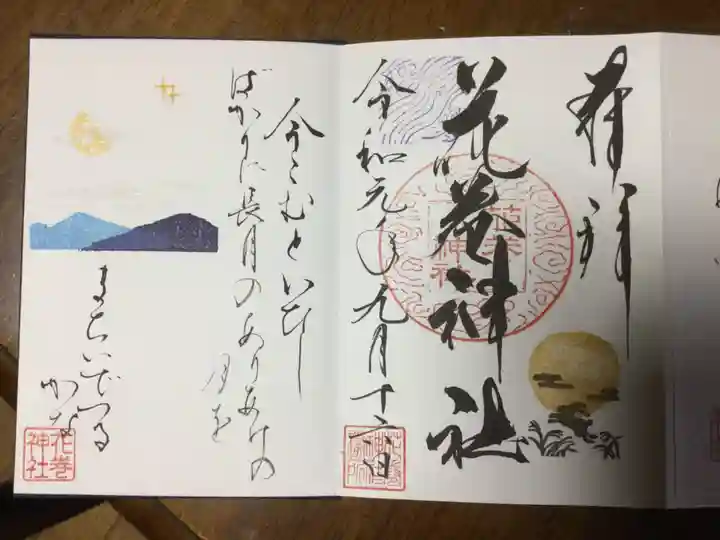 奉拝
花巻神社
花巻
神社
令和元年九月十六日
今こむといひし
ばかりに長月のありあけの
月を
まちいでつる
かな
花巻
神社